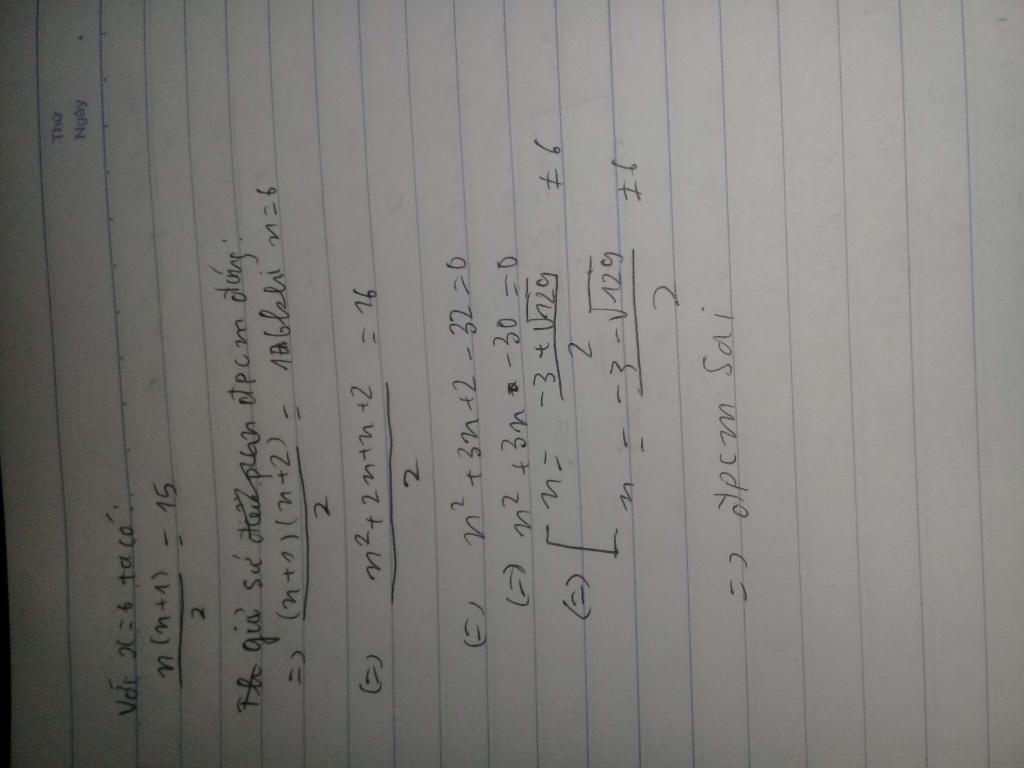 Thứ
Ngày
Với x=6 ta có:
n(n+1)/2 = 15
giả sử đpcm đúng.
=> (n+1)(n+2)/2 = khi n=6
(=) n²+2n+n+2/2 = 16
(=) n²+3n+2-32=0
(=) n²+3n-30=0
(=) [ n = -3+√129/2 ≠ 6
n = -3-√129/2 ≠ 6
=> đpcm sai